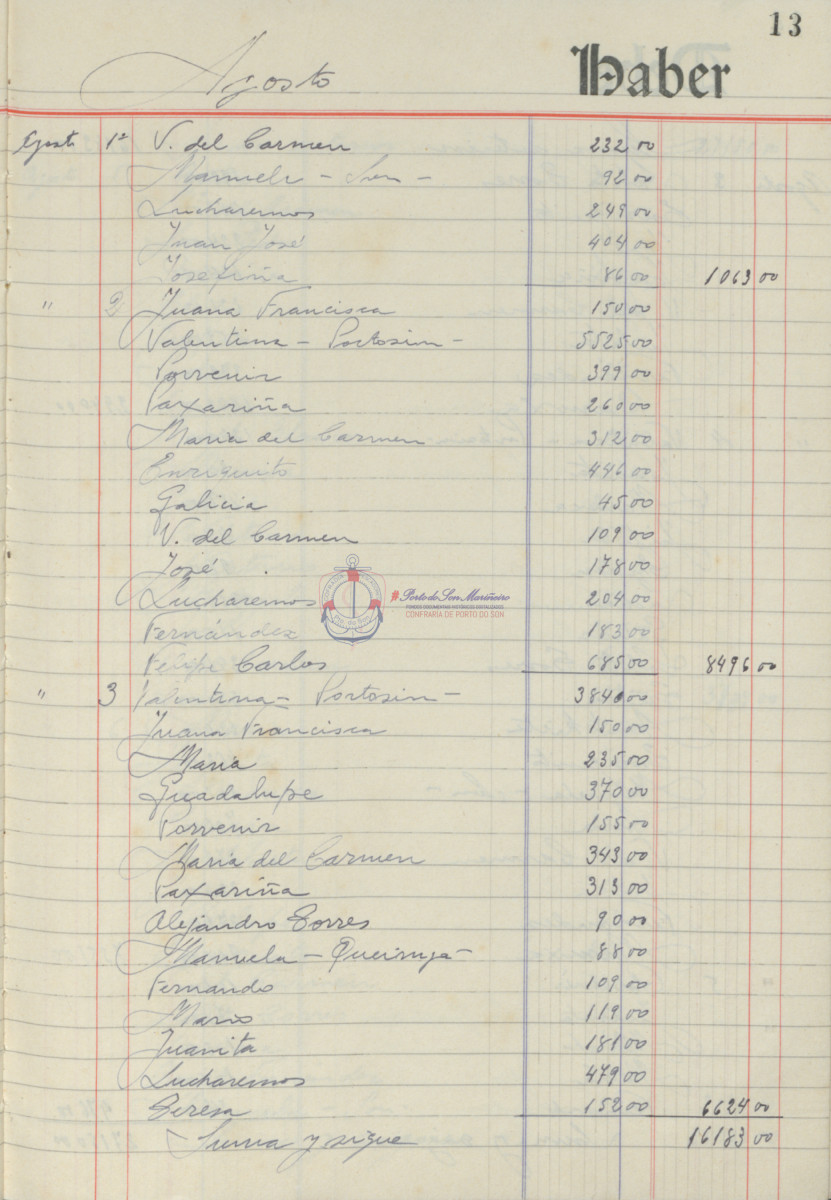 13
Agosto Haber
Agosto 1º V. del Carmen 232 00
Manuela - Son - 92 00
Lucharemos 249 00
Juan José 404 00
Josefiña 86 00 1063 00
" 2 Juana Francisca 150 00
Valentina - Portosin - 5525 00
Porvenir 399 00
Paxariña 260 00
Maria del Carmen 312 00
Enriquito 446 00
Galicia 45 00
V. del Carmen 109 00
José 178 00
Lucharemos 204 00
Fernández 183 00
Felipe Carlos 685 00 8496 00
" 3 Valentina - Portosin - 3840 00
Juana Francisca 150 00
Maria 235 00
Guadalupe 370 00
Porvenir 155 00
Maria del Carmen 343 00
Paxariña 313 00
Alejandro Torres 90 00
Manuela - Queiruga - 88 00
Fernando 109 00
Mario 119 00
Juanita 181 00
Lucharemos 479 00
Teresa 152 00 6624 00
Suma y sigue 16183 00
#Porto do Son Mariñeiro
FONDOS DOCUMENTAIS HISTÓRICOS DIXITALIZADOS
CONFRARÍA DE PORTO DO SON